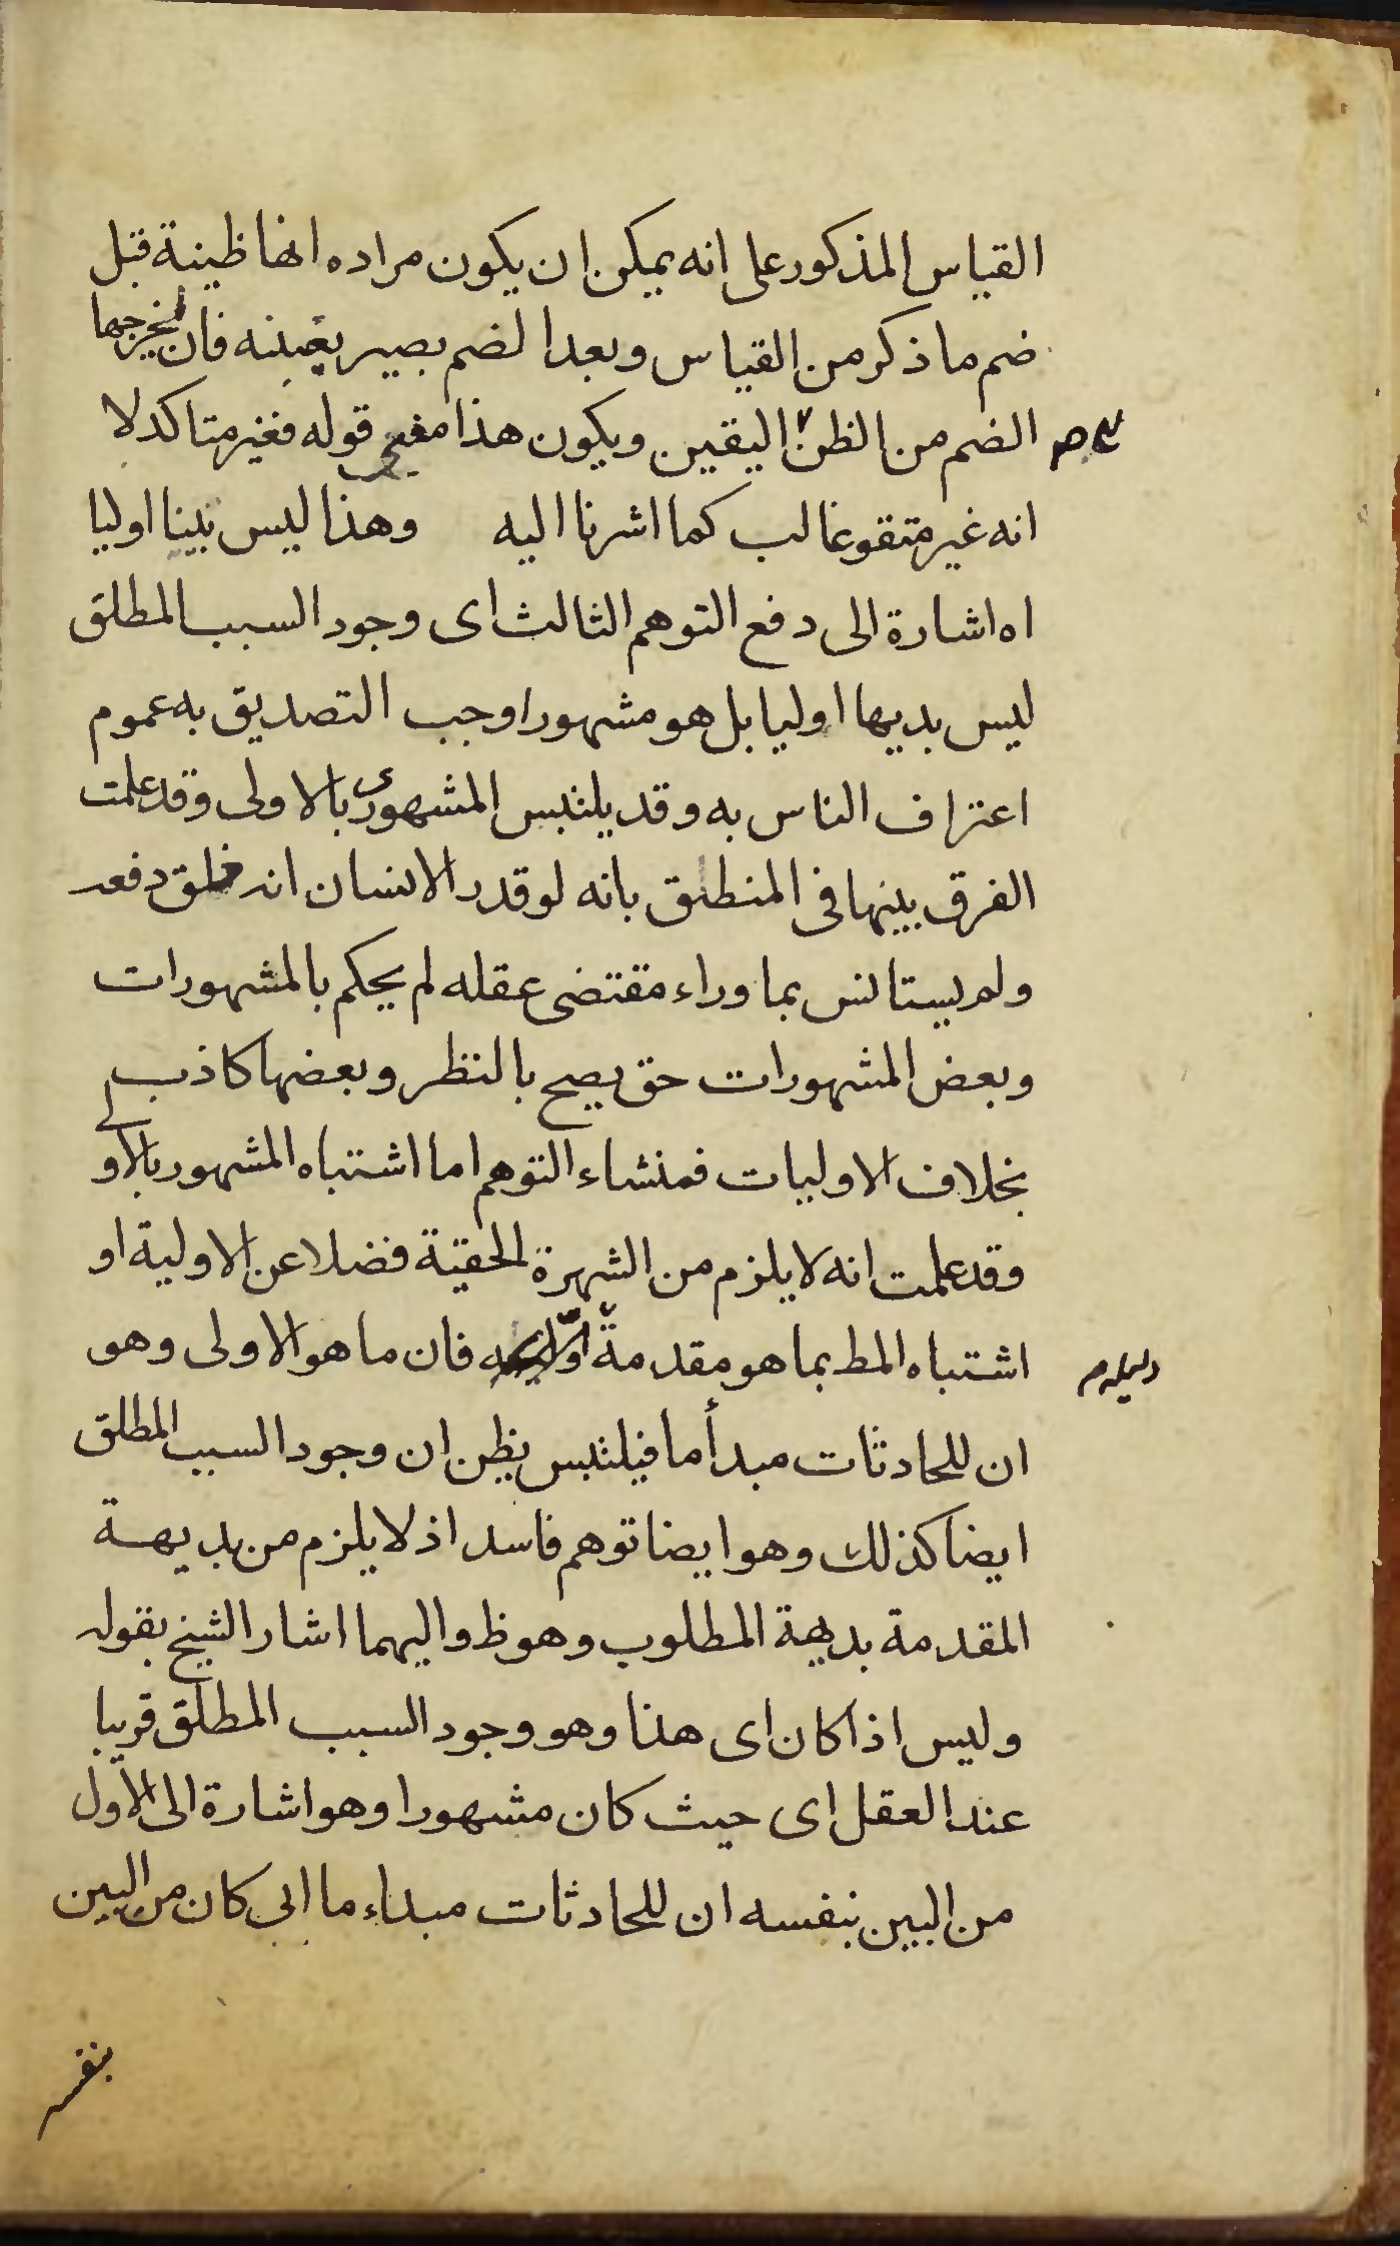 القياس المذكور على انه يمكن ان يكون مراده انها ظينة قبل
ضم ما ذكر من القياس وبعد الضم يصير يقينه فان يخرجها
الضم من الظن اليقين ويكون هذا معنى قوله فغير متاكد لا
انه غير متقوغالب كما اشرنا اليه وهذا ليس بينا اوليا
اه اشارة الى دفع التوهم الثالث اى وجود السبب المطلق
ليس بديها اوليا بل هو مشهورا وجب التصديق به عموم
اعتراف الناس به وقد يلتبس المشهورى بالاولى وقد علمت
الفرق بينها فى المنطق بانه لو قدر الانسان انه خلق دفعه
ولم يستانس بما وراء مقتضى عقله لم يحكم بالمشهورات
وبعض المشهورات حق يصح بالنظر وبعضها كاذب
بخلاف الاوليات فمنشاء التوهم اما اشتباه المشهور بالاولى
وقد علمت انه لا يلزم من الشهرة الحقية فضلا عن الاولية او
اشتباه المط بما هو مقدمة فان ما هو الاولى وهو
ان للحادثات مبدأ ما فيلتبس يظن ان وجود السبب المطلق
ايضا كذلك وهو ايضا توهم فاسد اذ لا يلزم من بديهة
المقدمة بديهة المطلوب وهو ظ واليهما اشار الشيخ بقوله
وليس اذا كان اى هذا وهو وجود السبب المطلق قريبا
عند العقل اى حيث كان مشهورا وهو اشارة الى الاول
من البين بنفسه ان للحادثات مبداء ما اى كان من البين
بنفسه